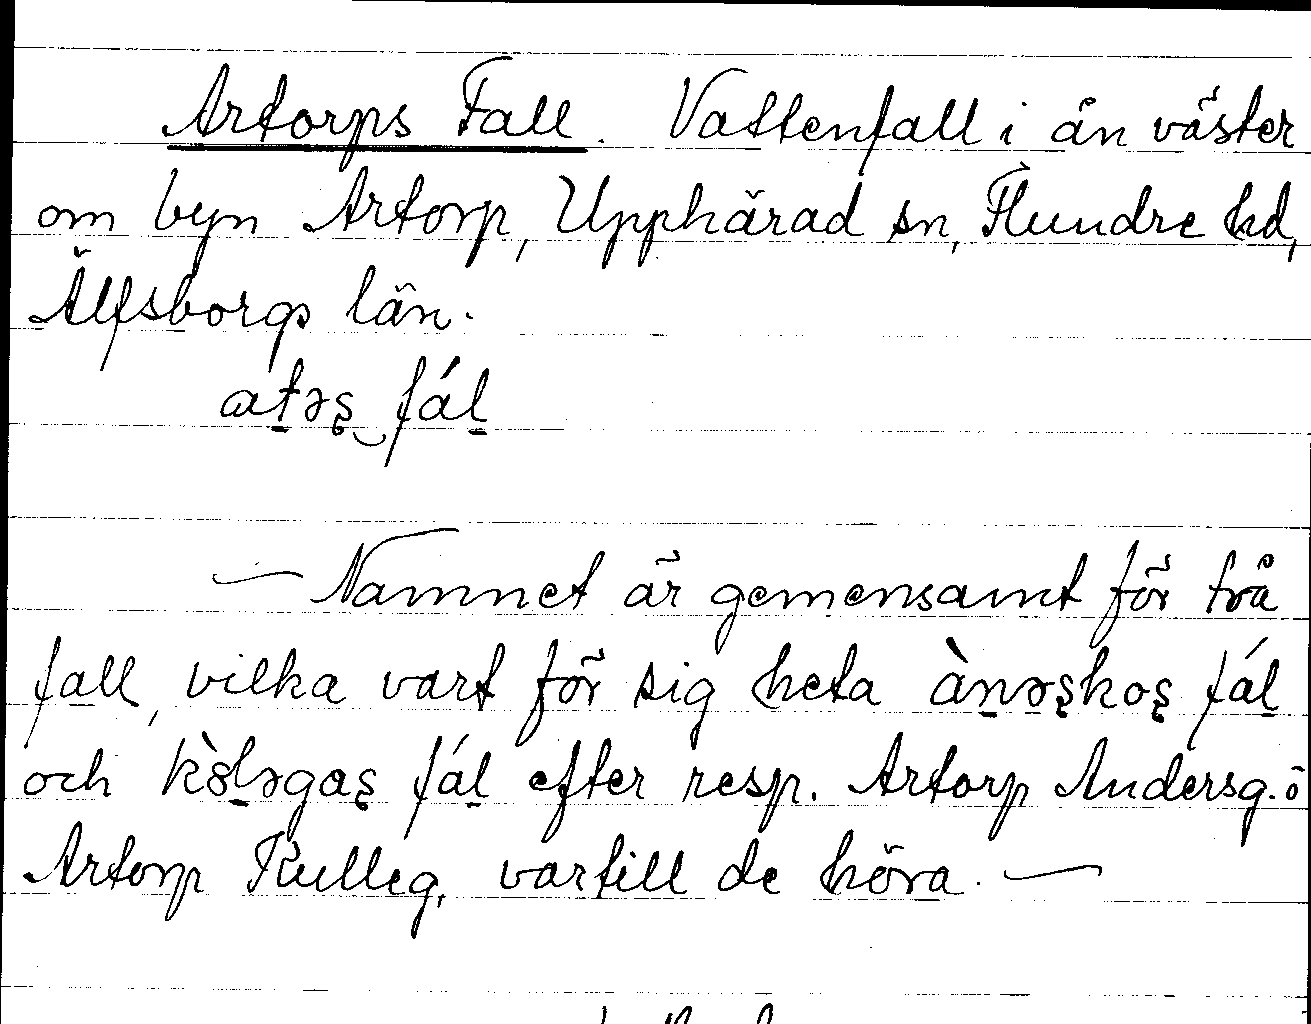 Artorps Fall. Vattenfall i ån väster
om byn Artorp, Upphärad sn, Flundre hd,
Älfsborgs län.
at̠əs̨‿fál̠
— Namnet är gemensamt för två
fall, vilka vart för sig heta àn̠əs̨kos̨ fál̠
och kɞ̀l̠əgas̨ fál̠ efter resp. Artorp Andersg. o
Artorp Kulleg, vartill de höra. —